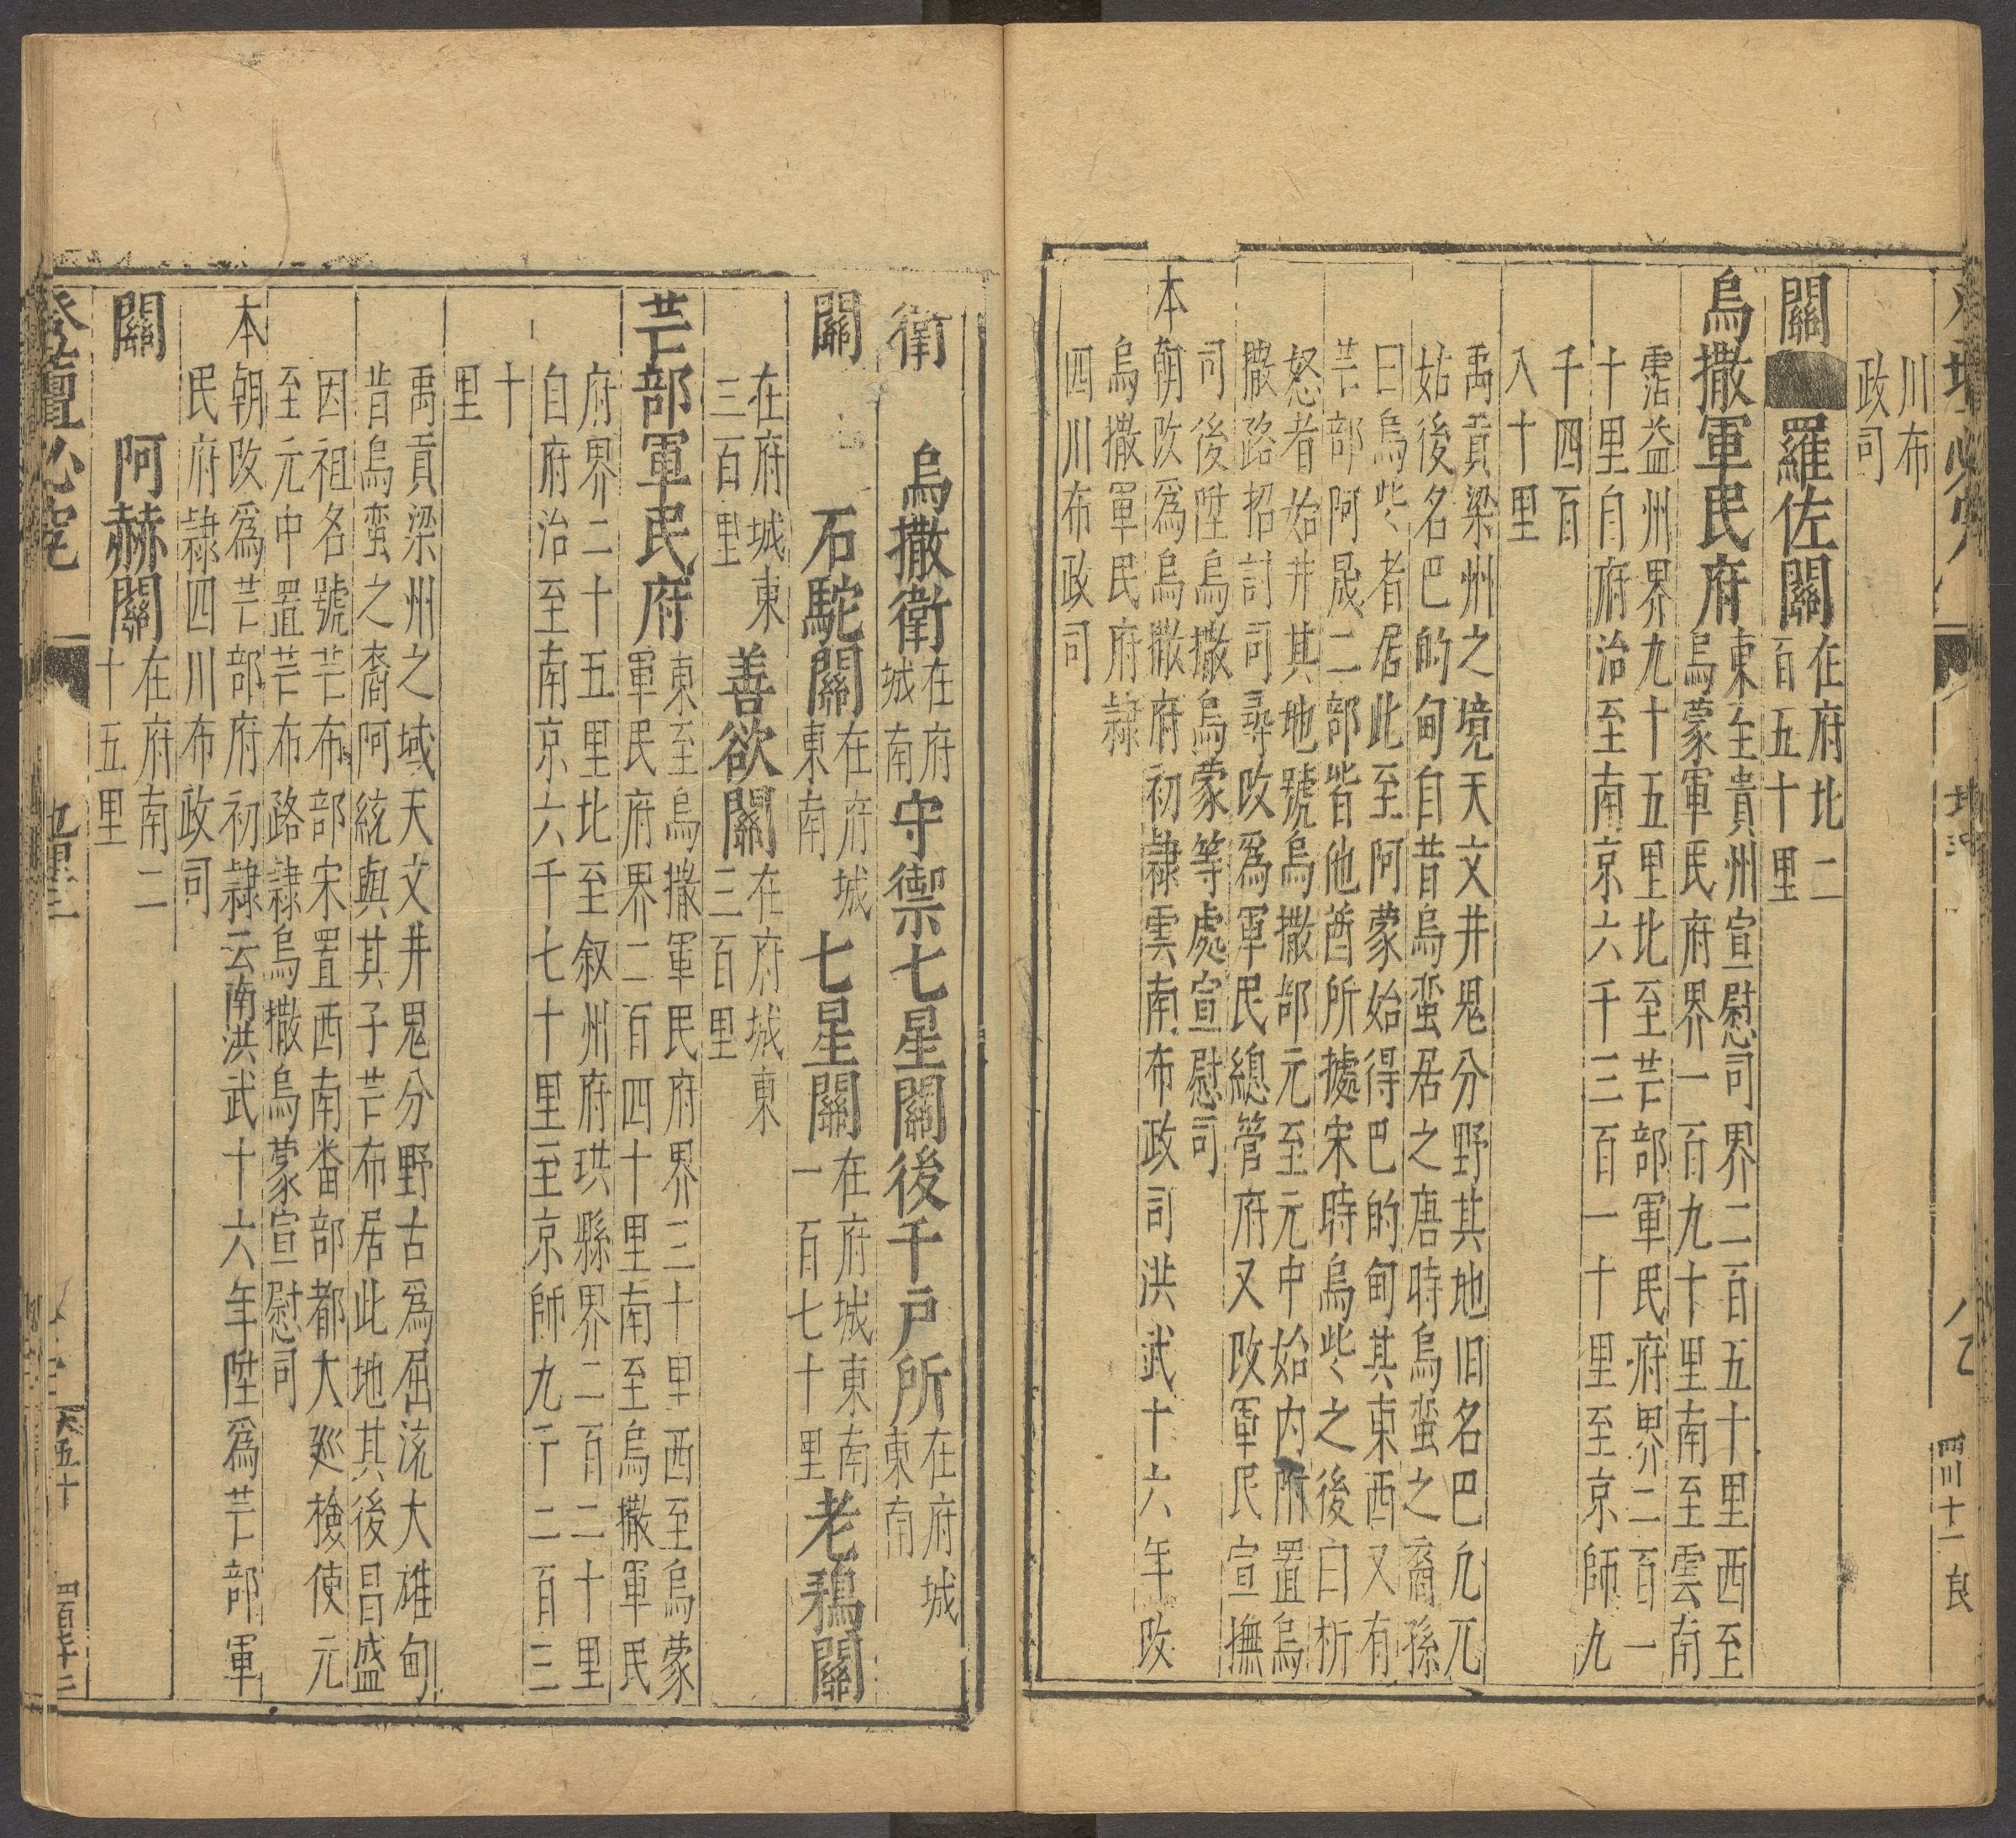 川布
政司
關　羅佐關在府北二
百五十里
烏撒軍民府東至貴州宣慰司界二百五十里西至
烏蒙軍民府界一百九十里南至雲南
霑益州界九十五里北至芒部軍民府界二百一
十里自府治至南京六千三百一十里至京師九
千四百
八十里
禹貢梁州之境天文井鬼分野其地旧名巴凢兀
姑後名巴的甸自昔烏蛮居之唐時烏蛮之裔孫
曰烏些者居此至阿蒙始得巴的甸其東西又有
芒部阿晟二部皆他酋所據宋時烏些之後曰析
怒者始并其地號烏撒部元至元中始内附置烏
撒路招討司尋改爲軍民總管府又改軍民宣撫
司後陞烏撒烏蒙等處宣慰司
本朝改爲烏撒府初隷雲南布政司洪武十六年改
烏撒軍民府隷
四川布政司
四川十一 良
衛　烏撒衛在府
城南守禦七星關後千戶所在府城
東南
關　石駝關在府城
東南七星關在府城東南
一百七十里老鴉關
在府城東
三百里善欲關在府城東
三百里
芒部軍民府東至烏撒軍民府界三十里西至烏蒙
軍民府界二百四十里南至烏撒軍民
府界二十五里北至叙州府珙縣界二百二十里
自府治至南京六千七十里至京師九千二百三
十
里
禹貢梁州之域天文井鬼分野古爲屈流大雄甸
昔烏蛮之裔阿統與其子芒布居此地其後昌盛
因祖名號芒布部宋置西南番部都大廵檢使元
至元中置芒布路隷烏撒烏蒙宣慰司
本朝改爲芒部府初隷云南洪武十六年陞爲芒部軍
民府隷四川布政司
關　阿赫關在府南二
十五里
登壇必究
卷五十